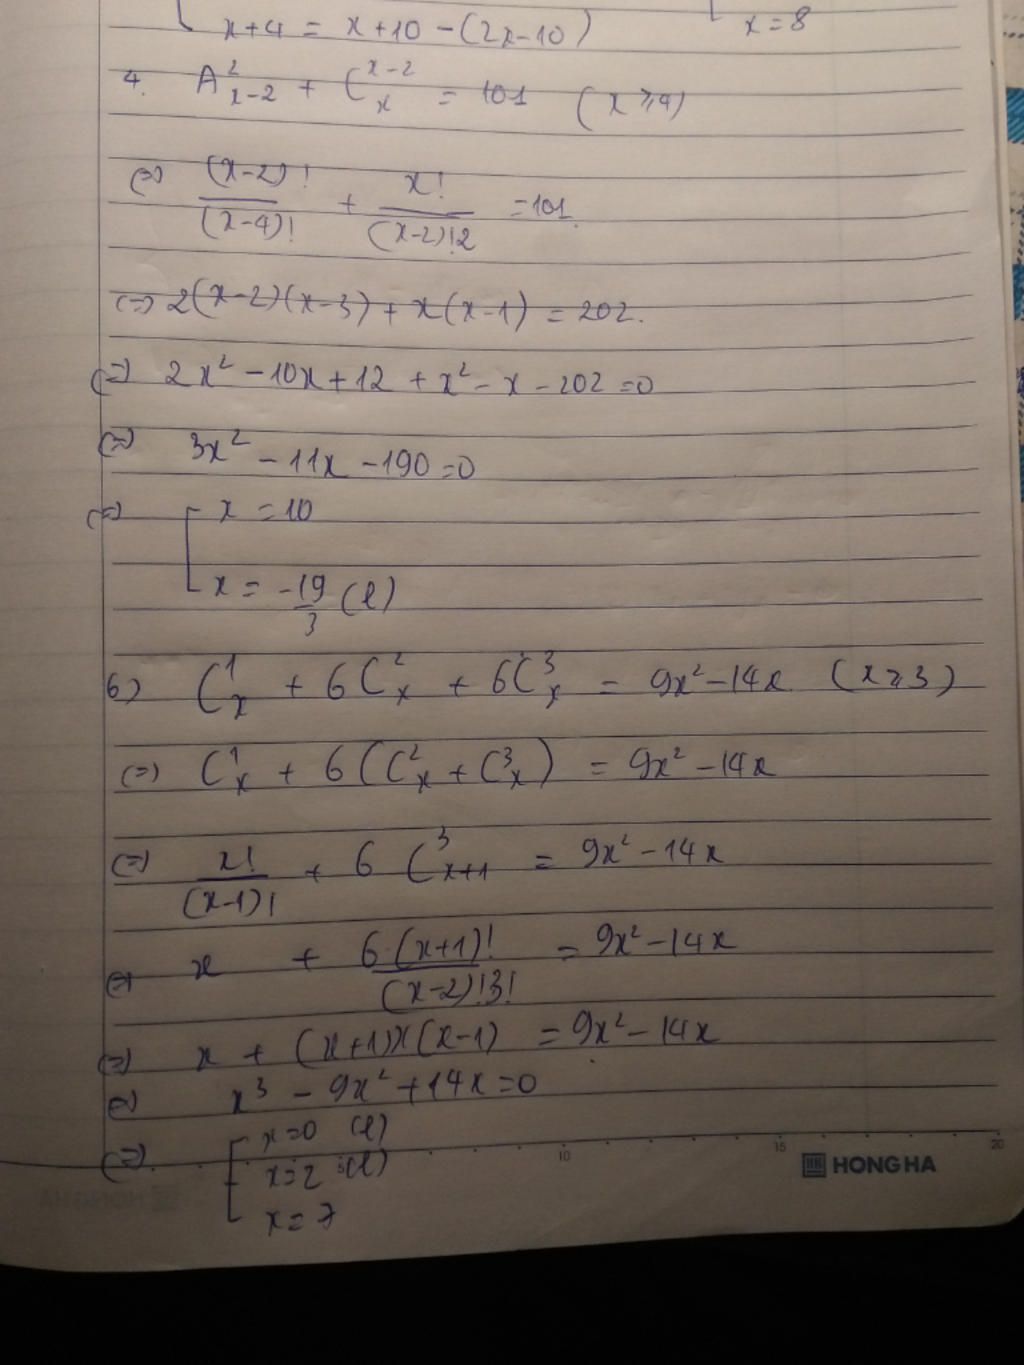 x+4 = x+10 -(2x-10)
x=8
4. A²ₓ₋₂ + Cₓˣ⁻² = 101 (x ≥ 4)
(=) (x-2)!/(x-4)! + x!/((x-2)!2) = 101.
(=) 2(x-2)(x-3) + x(x-1) = 202.
(=) 2x² - 10x + 12 + x² - x - 202 = 0
(=) 3x² - 11x - 190 = 0
(=) [ x = 10
x = -19/3 (l)
6) C¹ₓ + 6C²ₓ + 6C³ₓ = 9x² - 14x (x ≥ 3)
(=) C¹ₓ + 6(C²ₓ + C³ₓ) = 9x² - 14x
(=) x!/(x-1)! + 6 C³ₓ₊₁ = 9x² - 14x
(=) x + 6.(x+1)!/((x-2)!3!) = 9x² - 14x
(=) x + (x+1)x(x-1) = 9x² - 14x
(=) x³ - 9x² + 14x = 0
(=) [ x=0 (l)
x=2 (l)
x=7
10 15 20
HONG HA